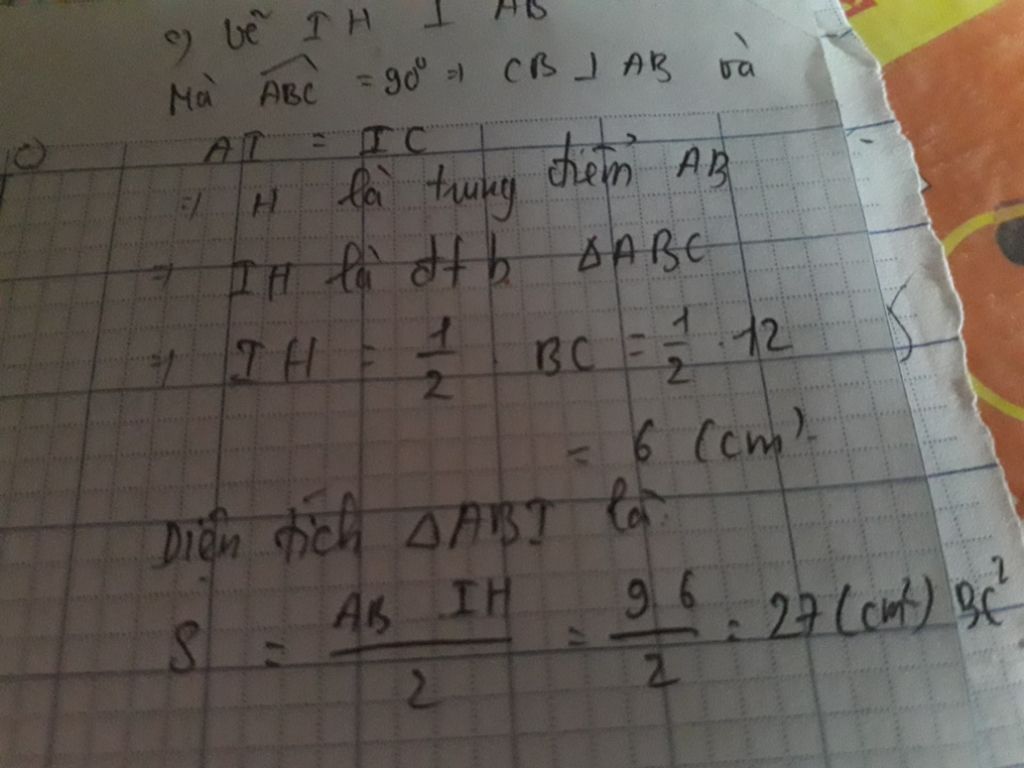 c) Vẽ IH ⊥ AB
Mà ABC = 90° ⇒ CB ⊥ AB và
c) AI = IC
⇒ H là trung điểm AB
⇒ IH là đtb ΔABC
⇒ IH = 1/2 . BC = 1/2 . 12
= 6 (cm)
Diện tích ΔABI là:
S = AB IH / 2 = 9 6 / 2 = 27 (cm²) BC²